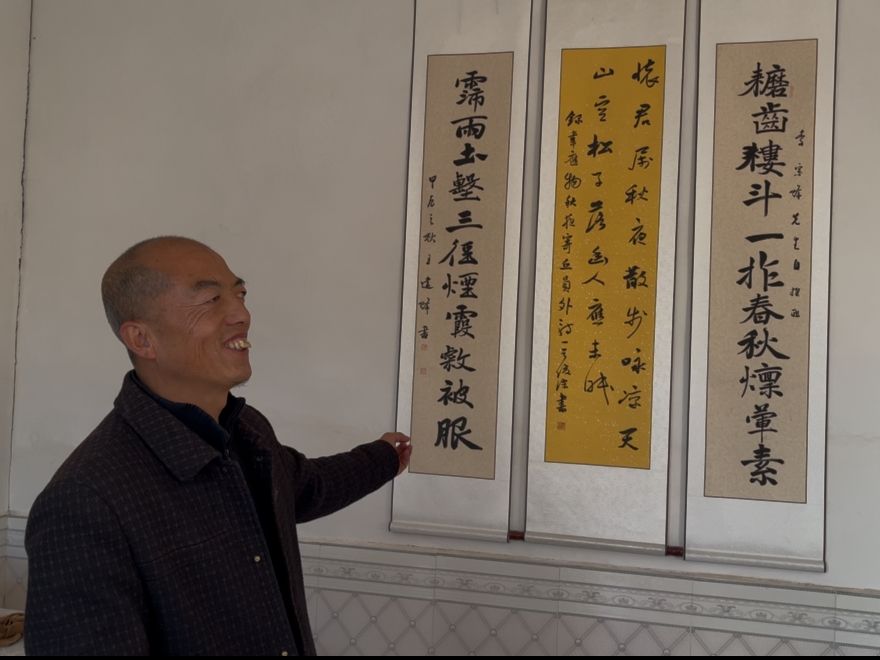 耱齒耬斗一拃春秋燣葷素
李宗峰先生自撰聯
懷君屬秋夜散步咏凉天
山空松子落幽人應未眠
錄韋應物秋夜寄丘員外詩一首
霈雨土墼三徑煙霞敹被服
甲辰之秋王建峰書